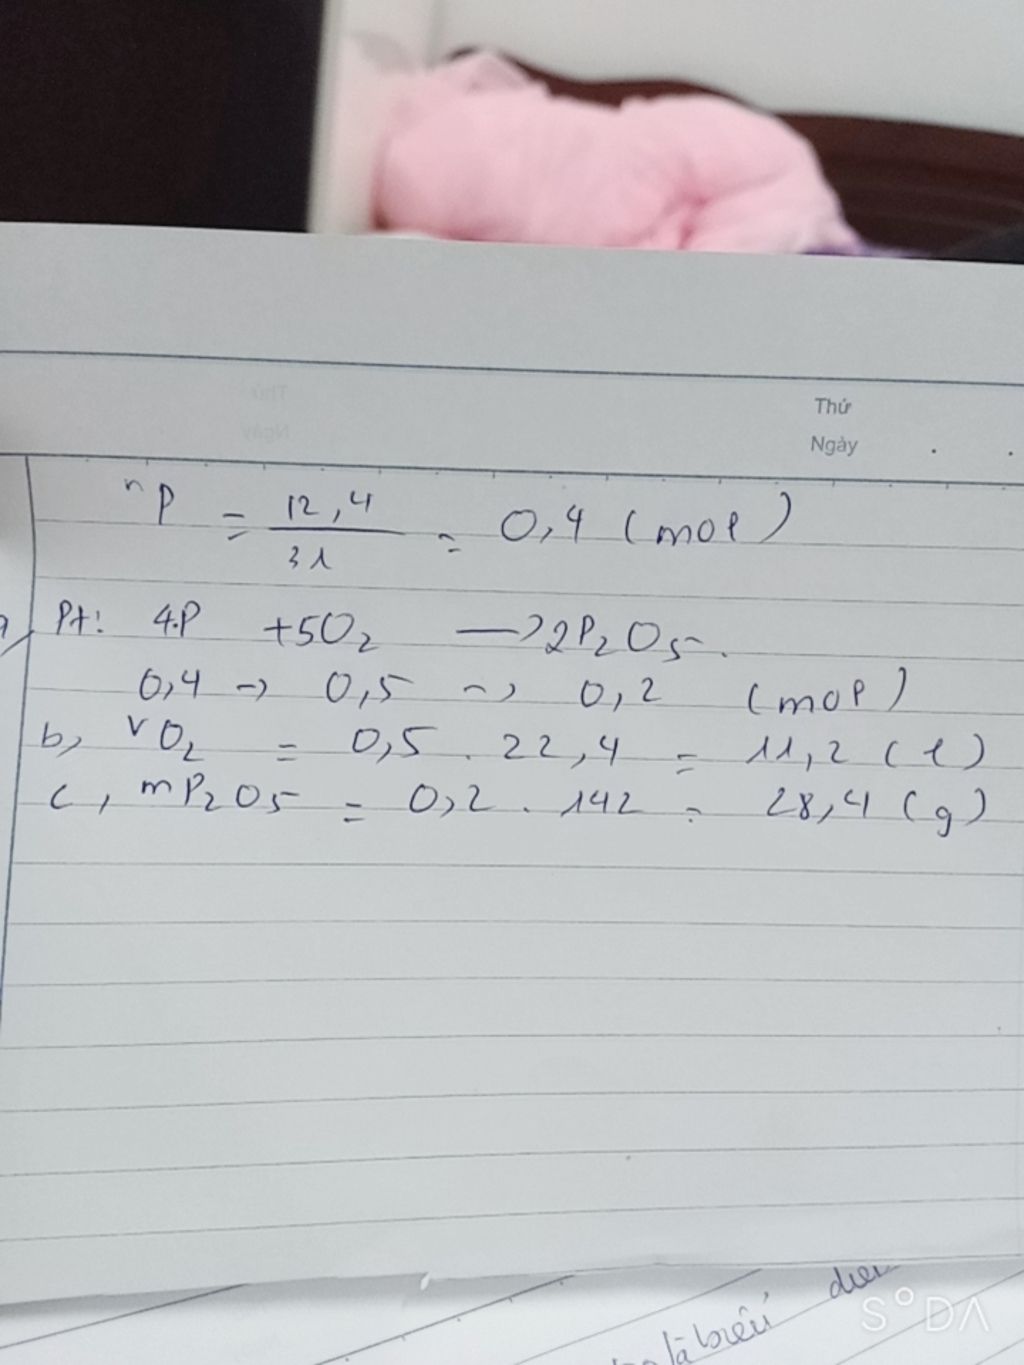 Thứ
Ngày
nP = 12,4 / 31 = 0,4 (mol)
a, Pt: 4P +5O2 → 2P2O5.
0,4 → 0,5 → 0,2 (mol)
b, VO2 = 0,5 . 22,4 = 11,2 (l)
c, mP2O5 = 0,2 . 142 = 28,4 (g)
là biểu diễn
SODA